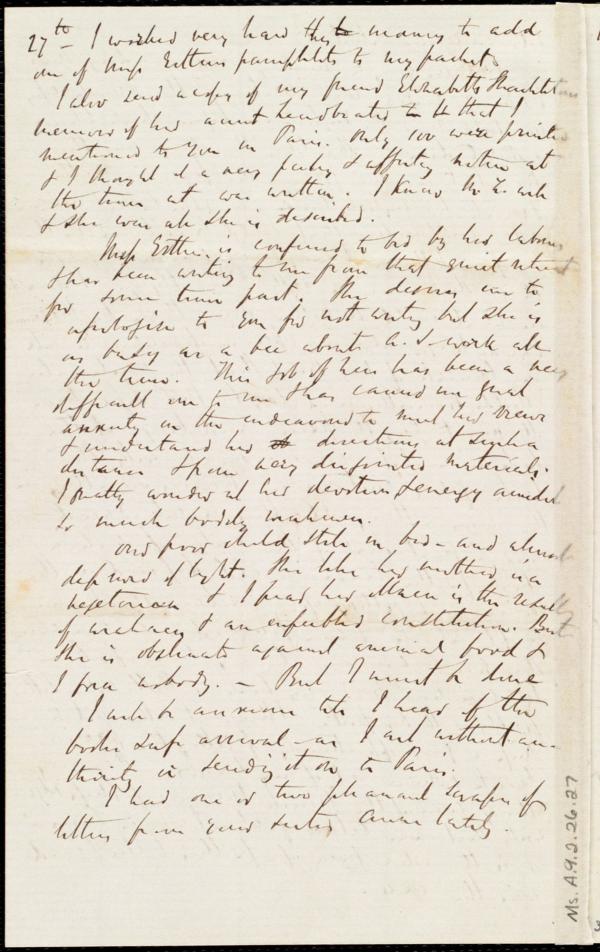 27th - I worked very hard this to morning to add
one of Miss Estlin's pamphlets to my packet.
I also send a copy of my friend Elizabeth Shackleton's
memoir of her aunt that I
mentioned to you in Paris. Only 100 were printed
& I thought it a very pretty & affecting notice at
the time it was written. I knew Mr. L. well
& she was all she is described.
Miss Estlin is confined to bed by her labours
& has been writing to me from that quiet retreat
for some time past. She desires me to
apologise to you for not writing but she is
as busy as a bee about A. S. work all
the time. This job of hers has been a very
difficult one to me & has caused me great
anxiety in the endeavour to meet her views
& understand her directions at such a
distance & from very disjointed materials.
I really wonder at her devotion & energy amidst
so much bodily weakness.
Our poor child still in bed - and almost
deprived of light. She like her mother is a
vegetarian & I fear her illness is the result
of weakness & an enfeebled constitution. But
she is obstinate against animal food &
I force nobody. - But I must be done
I will be anxious till I hear of the
books safe arrival - as I act without au-
thority in sending it on to Paris.
I had one or two pleasant scraps of
letters from your sister Anne lately.
Ms. A.9.2.26.27